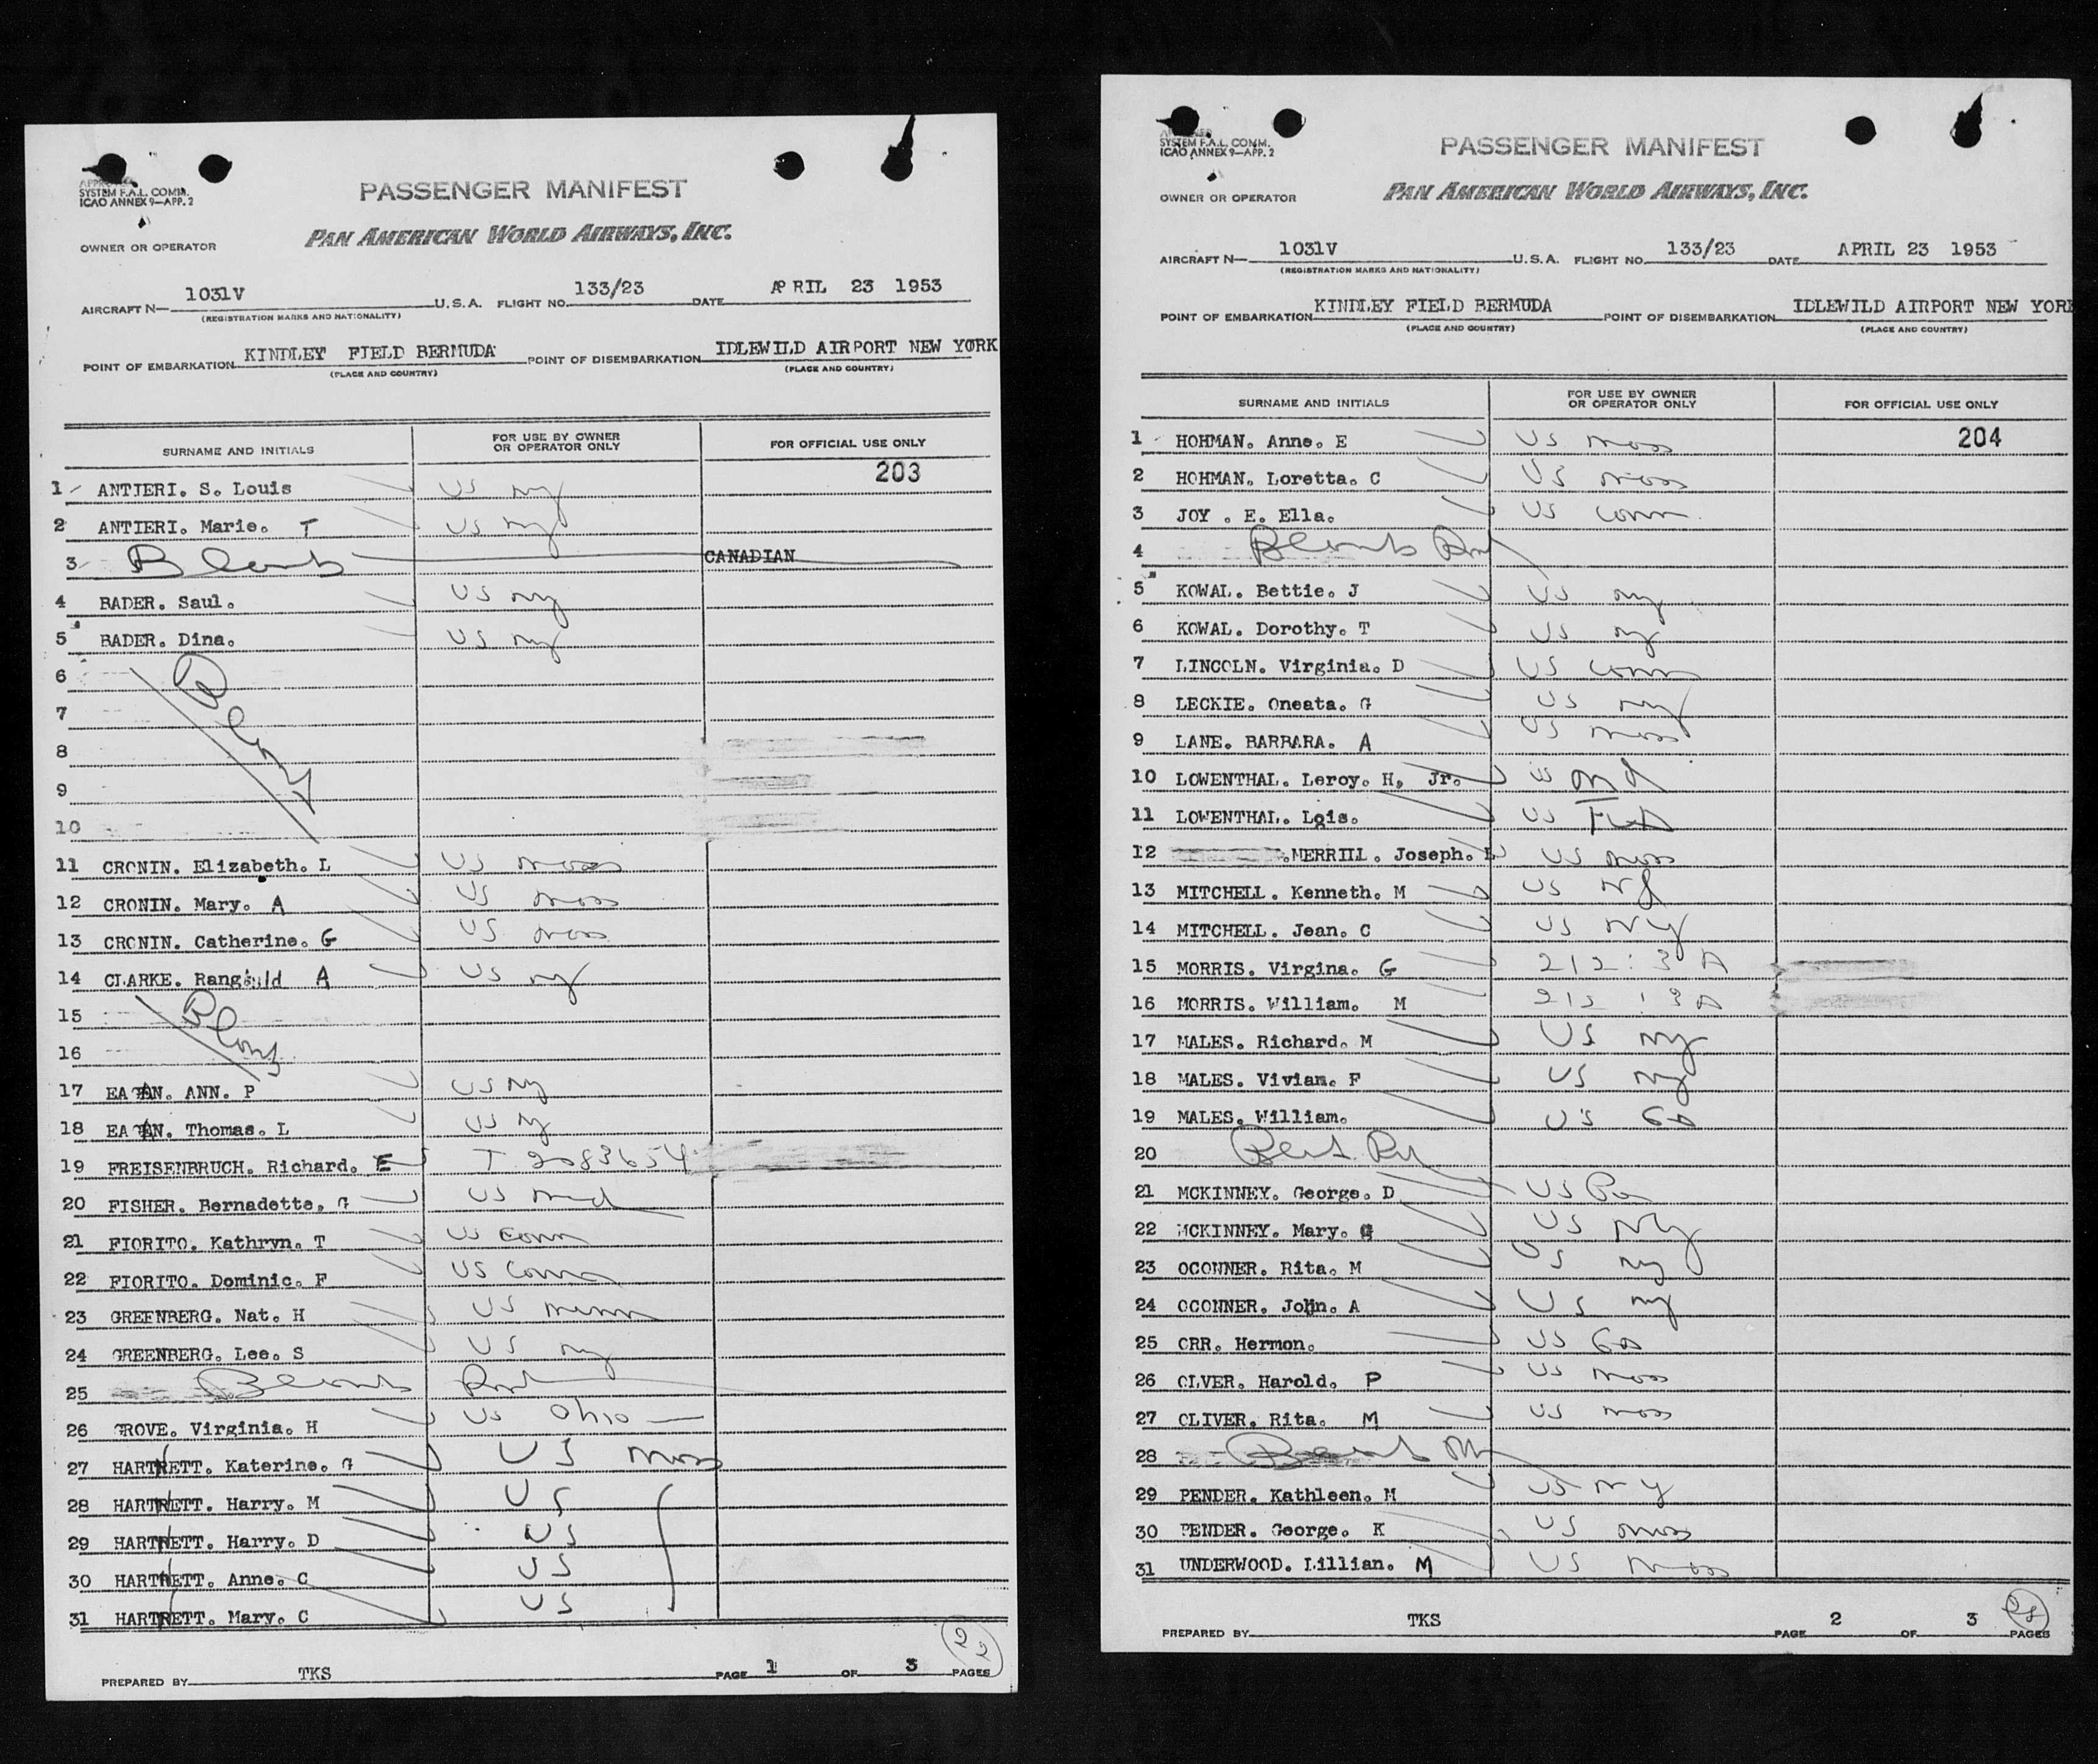 APPROVED
SYSTEM F.A.L. COMM.
ICAO ANNEX 9—APP. 2
PASSENGER MANIFEST
PAN AMERICAN WORLD AIRWAYS, INC.
OWNER OR OPERATOR
AIRCRAFT N— 1031V U.S.A. FLIGHT NO. 133/23 DATE APRIL 23 1953
(REGISTRATION MARKS AND NATIONALITY)
POINT OF EMBARKATION KINDLEY FIELD BERMUDA POINT OF DISEMBARKATION IDLEWILD AIRPORT NEW YORK
(PLACE AND COUNTRY) (PLACE AND COUNTRY)
SURNAME AND INITIALS FOR USE BY OWNER OR OPERATOR ONLY FOR OFFICIAL USE ONLY
203
1 ANTIERI. S. Louis US ny
2 ANTIERI. Marie. T US ny
3 Blank CANADIAN
4 BADER. Saul. US ny
5 BADER. Dina. US ny
6 Blank
7
8
9
10
11 CRONIN. Elizabeth. L US mass
12 CRONIN. Mary. A US mass
13 CRONIN. Catherine. G US mass
14 CLARKE. Ranghild A US ny
15 Blank
16
17 EAGAN. ANN. P US ny
18 EAGAN. Thomas. L US ny
19 FREISENBRUCH. Richard. E T 2083654
20 FISHER. Bernadette. G US md
21 FIORITO. Kathryn. T US Conn
22 FIORITO. Dominic. F US Conn
23 GREENBERG. Nat. H US minn
24 GREENBERG. Lee. S US ny
25
26 GROVE. Virginia. H US Ohio
27 HARTNETT. Katerine. G US mass
28 HARTNETT. Harry. M US
29 HARTNETT. Harry. D US
30 HARTNETT. Anne. C US
31 HARTNETT. Mary. C US
22
PREPARED BY TKS PAGE 1 OF 3 PAGES
SYSTEM F.A.L. COMM.
ICAO ANNEX 9—APP. 2
PASSENGER MANIFEST
PAN AMERICAN WORLD AIRWAYS, INC.
OWNER OR OPERATOR
AIRCRAFT N— 1031V U.S.A. FLIGHT NO. 133/23 DATE APRIL 23 1953
(REGISTRATION MARKS AND NATIONALITY)
POINT OF EMBARKATION KINDLEY FIELD BERMUDA POINT OF DISEMBARKATION IDLEWILD AIRPORT NEW YORK
(PLACE AND COUNTRY) (PLACE AND COUNTRY)
SURNAME AND INITIALS FOR USE BY OWNER OR OPERATOR ONLY FOR OFFICIAL USE ONLY
204
1 HOHMAN. Anne. E US mass
2 HOHMAN. Loretta. C US mass
3 JOY . E. Ella. US Conn
4
5 KOWAL. Bettie. J US ny
6 KOWAL. Dorothy. T US ny
7 LINCOLN. Virginia. D US Conn
8 LECKIE. Oneata. G US ny
9 LANE. BARBARA. A US mass
10 LOWENTHAL. Leroy. H, Jr. US md
11 LOWENTHAL. Lois. US
12 MERRILL. Joseph. US mass
13 MITCHELL. Kenneth. M US NJ
14 MITCHELL. Jean. C US NY
15 MORRIS. Virgina. G 212:3 A
16 MORRIS. William. M 212:3 A
17 MALES. Richard. M US ny
18 MALES. Vivian. F US ny
19 MALES. William. US Ga
20
21 MCKINNEY. George. D US Pa
22 MCKINNEY. Mary. G US Ny
23 OCONNER. Rita. M US ny
24 OCONNER. John. A US ny
25 ORR. Hermon. US Ga
26 OLVER. Harold. P US mass
27 OLIVER. Rita. M US mass
28
29 PENDER. Kathleen. M US ny
30 PENDER. George. K US mass
31 UNDERWOOD. Lillian. M US mass
28
PREPARED BY TKS PAGE 2 OF 3 PAGES